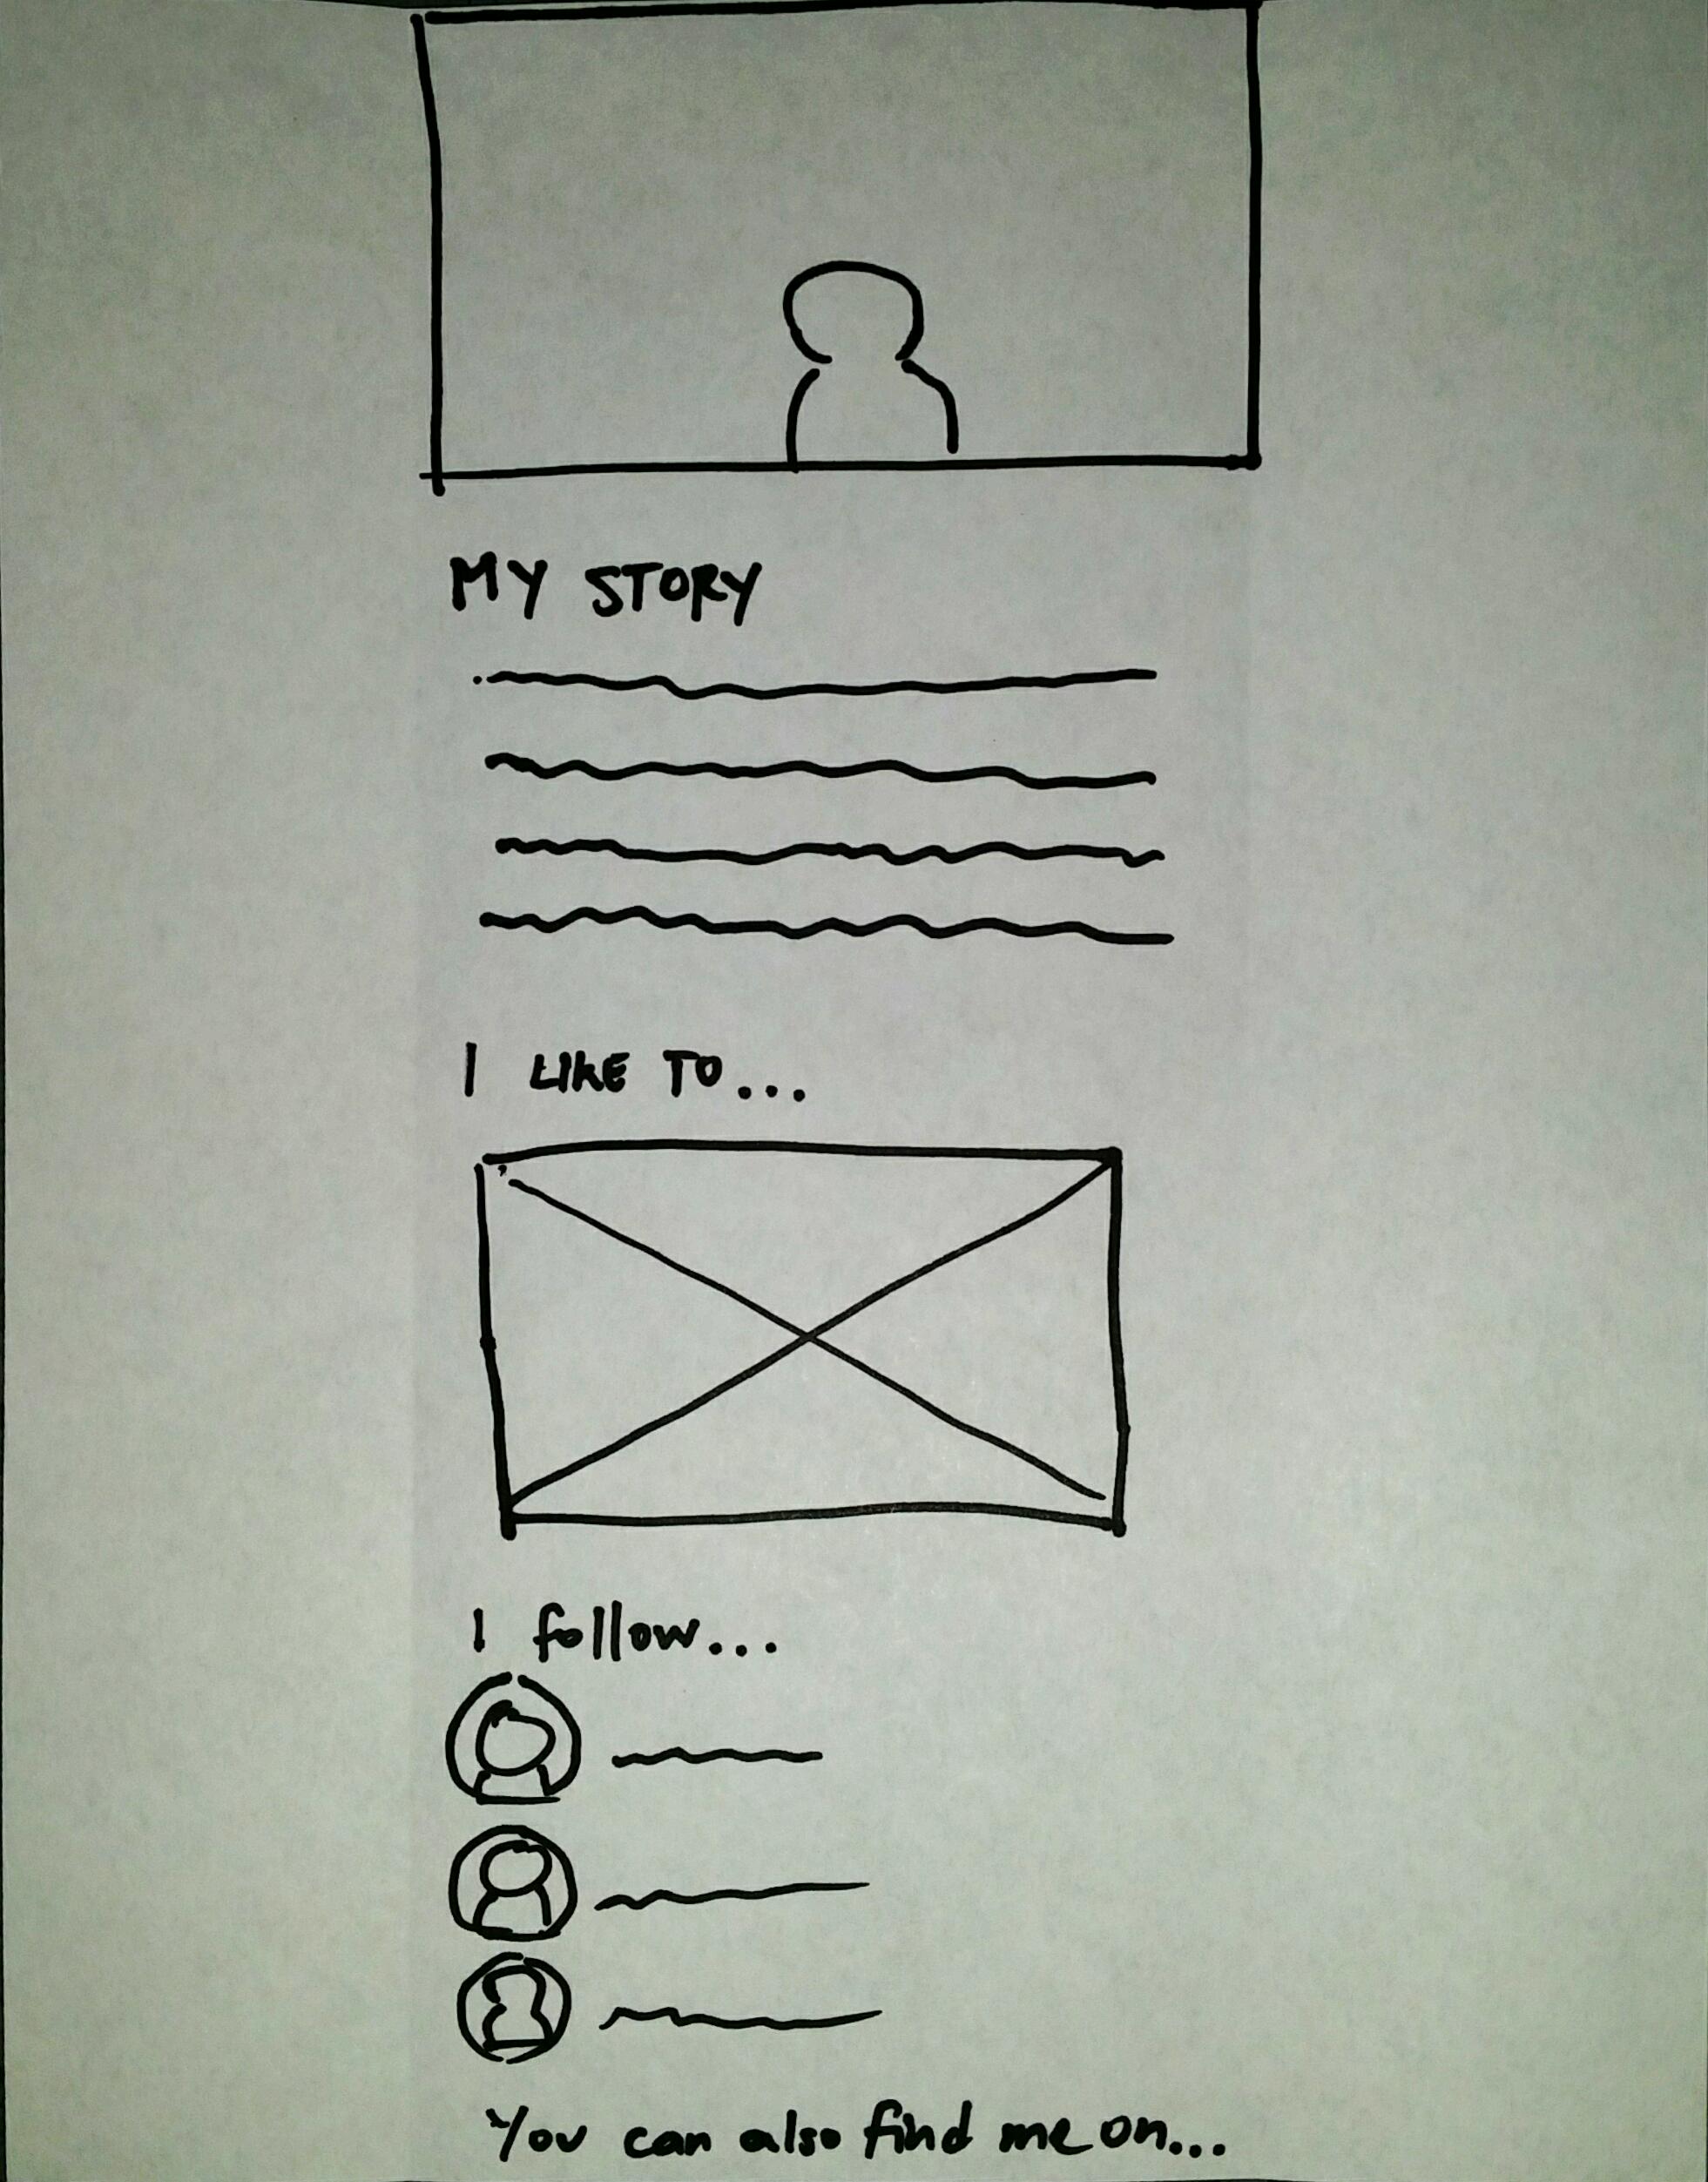 MY STORY
I LIKE TO...
I follow...
You can also find me on...